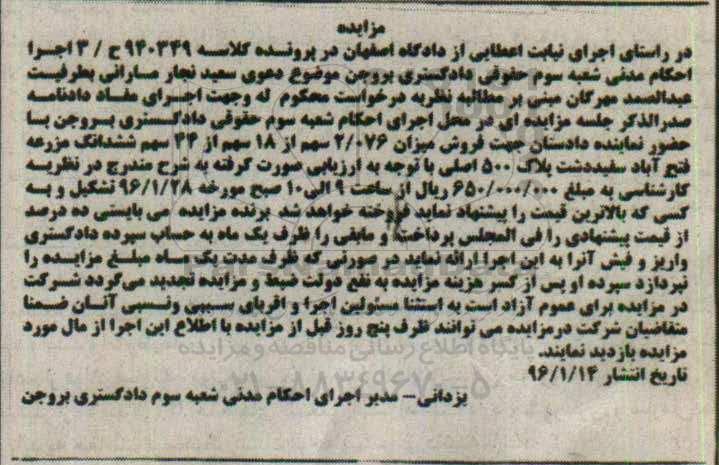 مزایده
در راستای اجرای نیابت اعطایی از دادگاه اصفهان در پرونده کلاسه ۹۴۰۳۴۹ ح / ۳ اجرا
احکام مدنی شعبه سوم حقوقی دادگستری بروجن موضوع دعوی سعید نجار سارانی بطرفیت
عبدالصمد مهرگان مبنی بر مطالبه نظریه درخواست محکوم له وجهت اجرای مفاد دادنامه
صدرالذکر جلسه مزایده ای در محل اجرای احکام شعبه سوم حقوقی دادگستری بروجن با
حضور نماینده دادستان جهت فروش میزان ۲/۰۷۶ سهم از ۱۸ سهم از ۴۴ سهم ششدانگ مزرعه
فتح آباد سفیددشت پلاک ۵۰۰ اصلی با توجه به ارزیابی صورت گرفته به شرح مندرج در نظریه
کارشناسی به مبلغ ۶۵۰/۰۰۰/۰۰۰ ریال از ساعت ۹ الی۱۰ صبح مورخه ۹۶/۱/۲۸ تشکیل و به
کسی که بالاترین قیمت را پیشنهاد نماید فروخته خواهد شد برنده مزایده می بایستی ده درصد
از قیمت پیشنهادی را فی المجلس پرداخته و مابقی را ظرف یک ماه به حساب سپرده دادگستری
واریز و فیش آنرا به این اجرا ارائه نماید در صورتی که ظرف مدت یک ماه مبلغ مزایده را
نپردازد سپرده او پس از کسر هزینه مزایده به نفع دولت ضبط و مزایده تجدید می گردد شرکت
در مزایده برای عموم آزاد است به استثنا مسئولین اجرا و اقربای سببی ونسبی آنان ضمنا
متقاضیان شرکت درمزایده می توانند ظرف پنج روز قبل از مزایده با اطلاع این اجرا از مال مورد
مزایده بازدید نمایند.
تاریخ انتشار ۹۶/۱/۱۴
یزدانی– مدیر اجرای احکام مدنی شعبه سوم دادگستری بروجن
پایگاه اطلاع رسانی مناقصه و مزایده
۰۲۱-۸۸۳۴۹۶۷۰-۵